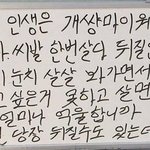 인생은 개상마이웨
씨발 한번살다 뒤질인
눈치 살살 봐가면서
싶은거 못하고 살면
얼마나 억울합니까
당장 뒤질수도 있는데